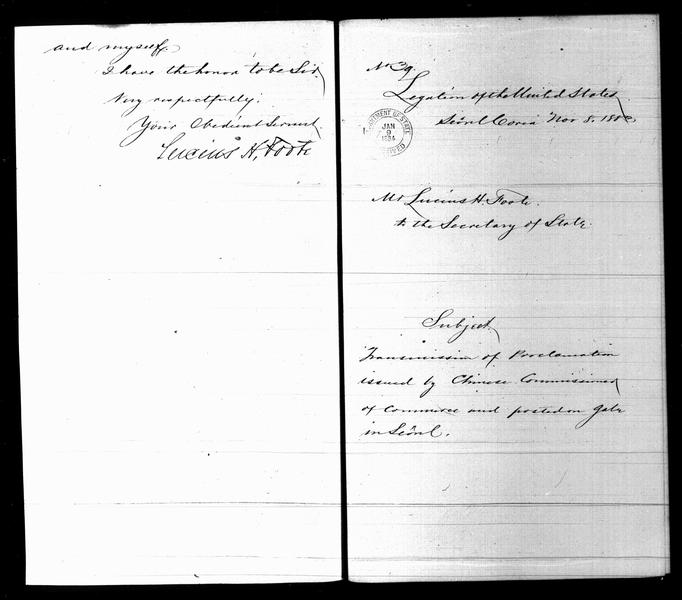 and myself
I have the honor to be Sir,
Very respectfully:
Your Obedient Servant
Lucius H. Foote
No 39.
Legation of the United States
Séoul Corea Nov 8. 188
DEPARTMENT OF STATE
JAN
9
1884
RECEIVED
Mr Lucius H. Foote.
to the Secretary of State.
Subject
Transmission of Proclamation
issued by Chinese Commissioner
of Commerce and posted on gate
in Séoul.